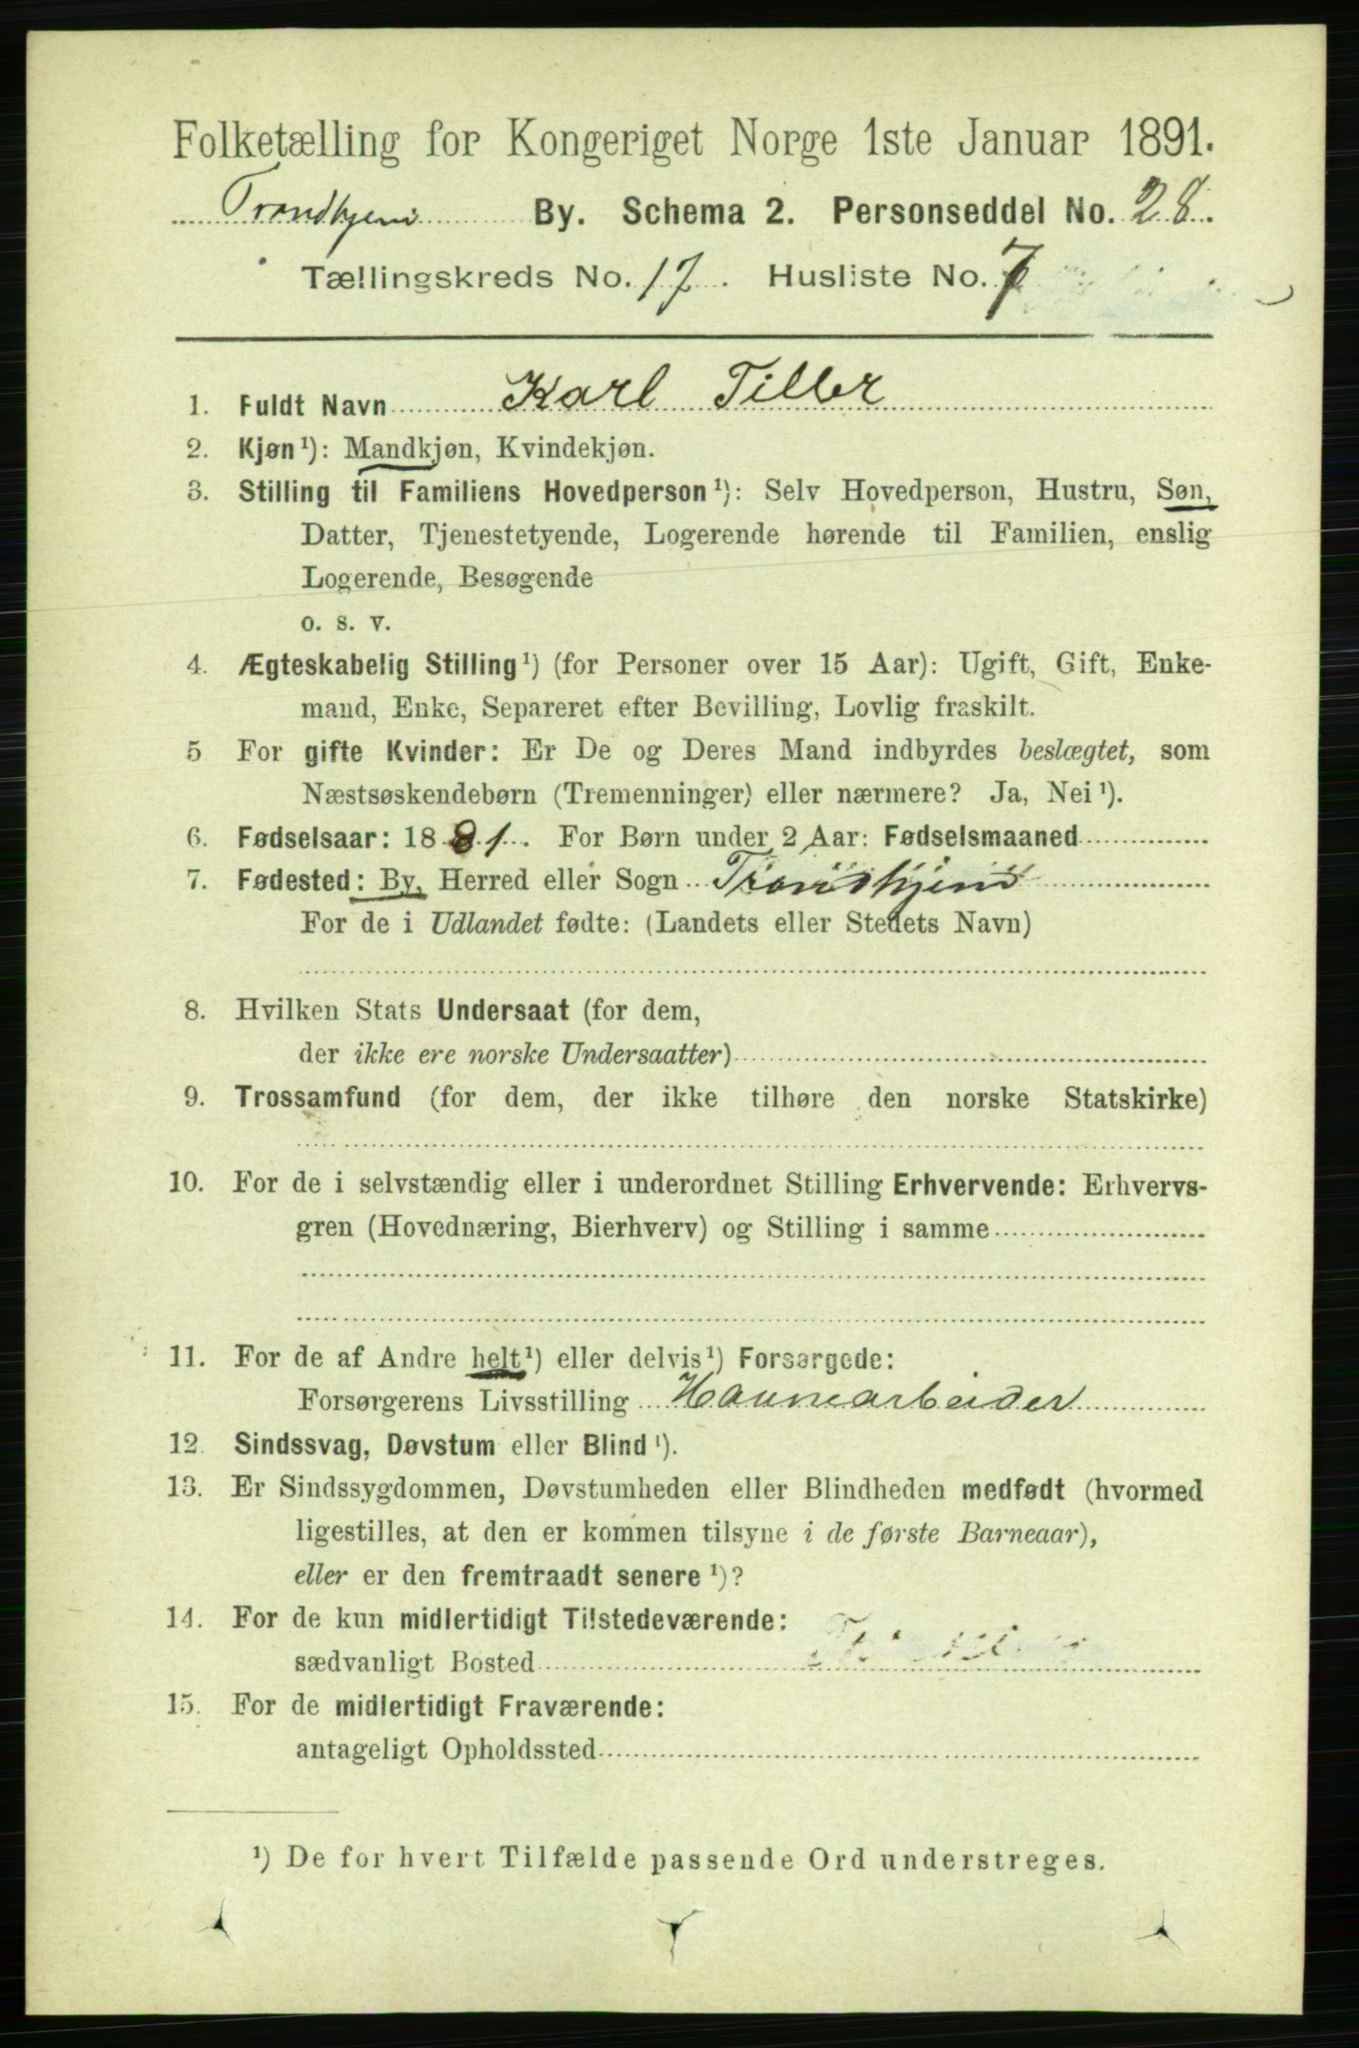 Folketælling for Kongeriget Norge 1ste Januar 1891.
Trondhjem By. Schema 2. Personseddel No. 28.
Tællingskreds No. 17. Husliste No. 7
1. Fuldt Navn Karl Tiller
2. Kjøn¹): Mandkjøn, Kvindekjøn.
3. Stilling til Familiens Hovedperson¹): Selv Hovedperson, Hustru, Søn,
Datter, Tjenestetyende, Logerende hørende til Familien, enslig
Logerende, Besøgende
o. s. v.
4. Ægteskabelig Stilling¹) (for Personer over 15 Aar): Ugift, Gift, Enke-
mand, Enke, Separeret efter Bevilling, Lovlig fraskilt.
5 For gifte Kvinder: Er De og Deres Mand indbyrdes beslægtet, som
Næstsøskendebørn (Tremenninger) eller nærmere? Ja, Nei¹).
6. Fødselsaar: 1881. For Børn under 2 Aar: Fødselsmaaned
7. Fødested: By, Herred eller Sogn Trondhjem
For de i Udlandet fødte: (Landets eller Stedets Navn)
8. Hvilken Stats Undersaat (for dem,
der ikke ere norske Undersaatter)
9. Trossamfund (for dem, der ikke tilhøre den norske Statskirke)
10. For de i selvstændig eller i underordnet Stilling Erhvervende: Erhvervs-
gren (Hovednæring, Bierhverv) og Stilling i samme
11. For de af Andre helt¹) eller delvis¹) Forsørgede:
Forsørgerens Livsstilling Havnearbeider
12. Sindssvag, Døvstum eller Blind¹).
13. Er Sindssygdommen, Døvstumheden eller Blindheden medfødt (hvormed
ligestilles, at den er kommen tilsyne i de første Barneaar),
eller er den fremtraadt senere¹)?
14. For de kun midlertidigt Tilstedeværende:
sædvanligt Bosted
15. For de midlertidigt Fraværende:
antageligt Opholdssted
¹) De for hvert Tilfælde passende Ord understreges.